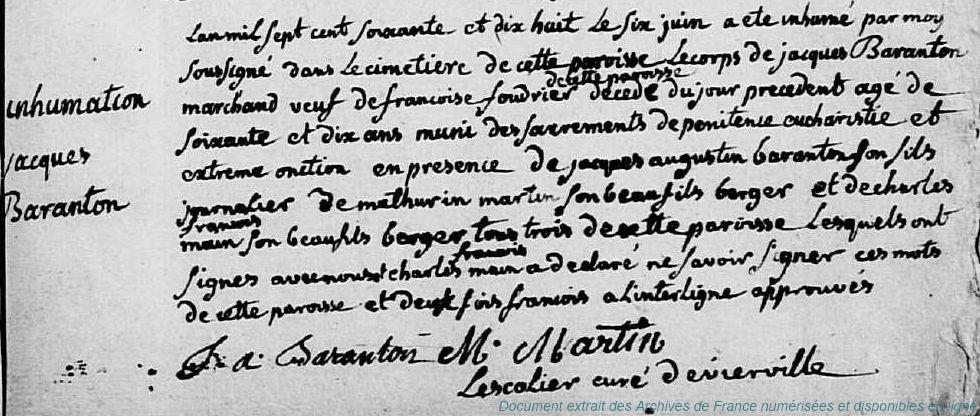 Lan mil sept cent soixante et dix huit Le six juin a ete inhumé par moy
soussigné dans Le cimetiere de cette paroisse Le corps de jacques Baranton
de cette paroisse
marchand veuf de francoise foudrier decedé du jour precedent agé de
soixante et dix ans muni des sacrements de penitence eucharistie et
extreme onction en presence de jacques augustin baranton son fils
journalier de mathurin martin son beau fils berger et de charles
francois
main son beau fils berger tous trois de cette paroisse Lesquels ont
francois
signes avec nous charles main a declaré ne savoir signer ces mots
de cette paroisse et deux fois francois a Linterligne approuvés
inhumation
jacques
Baranton
J. a. Baranton M. Martin
Lescalier curé d'evierville
Document extrait des Archives de France numérisées et disponibles en ligne